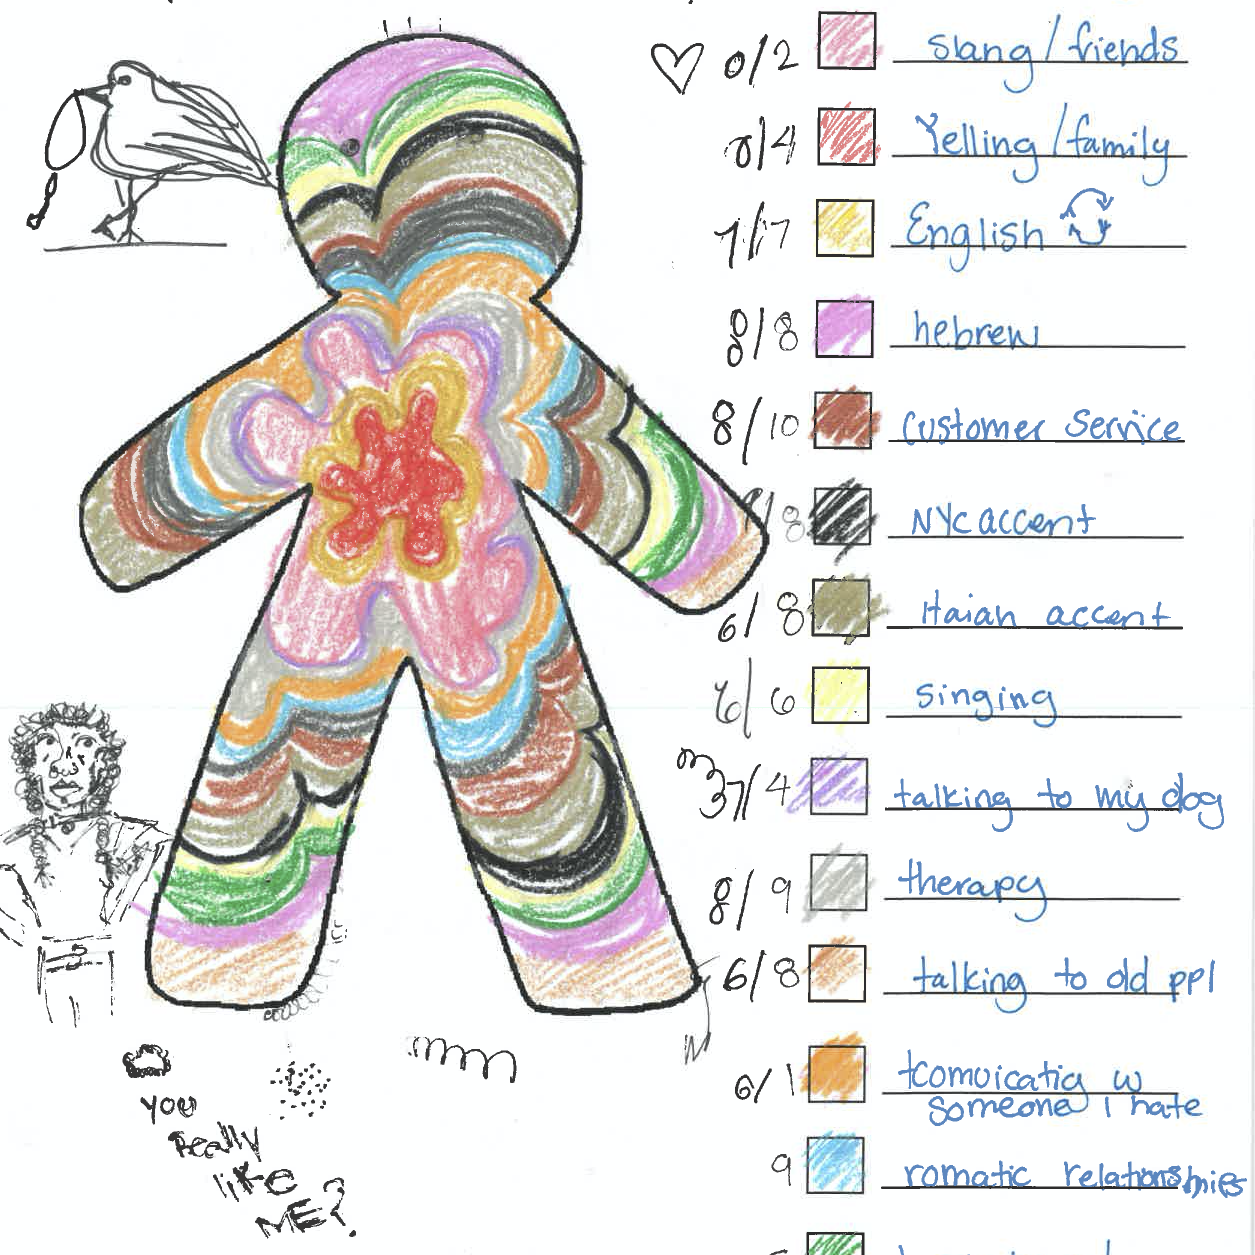 0/2 slang/friends
0/4 Yelling/family
7/7 English
8/8 hebrew
8/10 customer service
/8 NYC accent
6/8 Haian accent
6/6 singing
37/4 talking to my dog
8/9 therapy
6/8 talking to old ppl
6/1 tcomuicatig w
someone I hate
9 romatic relationshies
YOU
Really
like
ME?